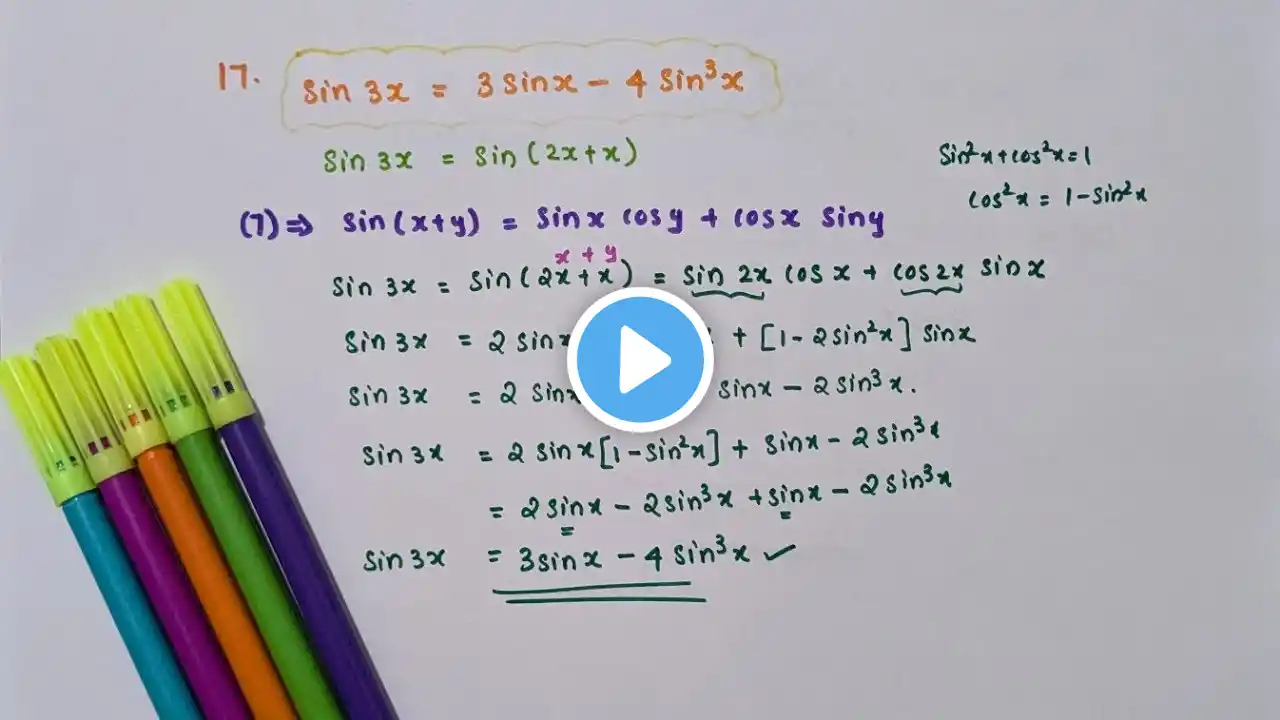 17. Sin 3x = 3 Sinx - 4 Sin³x
Sin 3x = Sin (2x+x)
Sin²x + cos²x = 1
cos²x = 1 - Sin²x
(7) ⇒ Sin (x+y) = Sinx cosy + cosx siny
x + y
Sin 3x = Sin (2x + x) = Sin 2x cos x + cos 2x sin x
Sin 3x = 2 sinx + [1 - 2sin²x] sinx
Sin 3x = 2 sinx sinx - 2 sin³x.
Sin 3x = 2 sin x [1 - sin²x] + sinx - 2 sin³x
= 2 sinx - 2sin³x + sinx - 2 sin³x
Sin 3x = 3sinx - 4 sin³x ✓